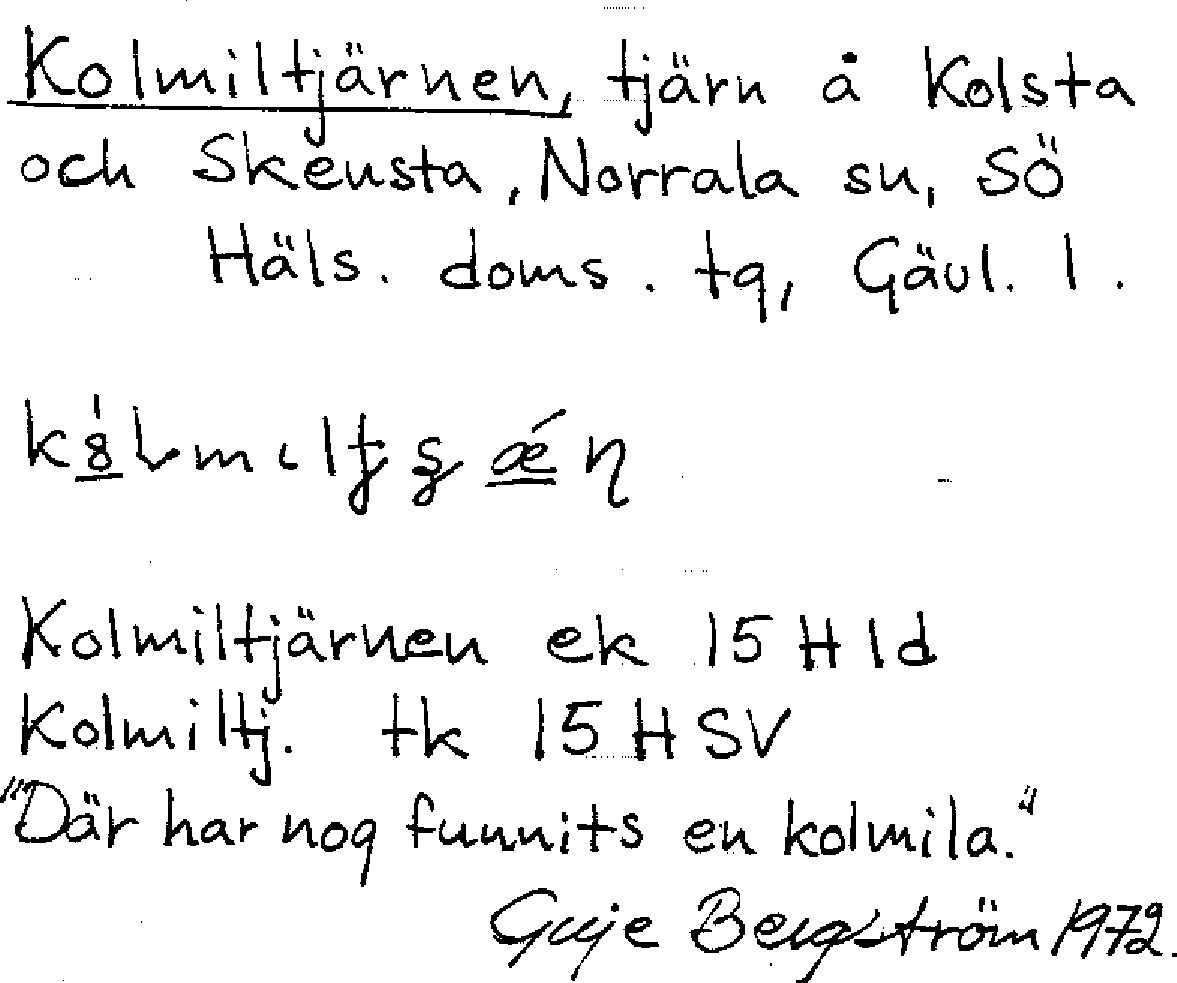 Kolmiltjärnen, tjärn å Kolsta
och Skensta, Norrala sn, Sö
Häls. doms. tg, Gävl. l.
Kolmiltjärnen ek 15 H 1d
Kolmiltj. tk 15 H SV
"Där har nog funnits en kolmila."
Guje Bergström 1972.